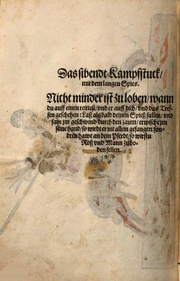 Das sibendt Kampffstuck/
mit dem langen Spies.
Nicht minder ist zu loben/wann
du auff einen reittest/vnd er auff dich/vnd das Tref-
fen geschehen: Laß alsbald deinen Spieß fallen/vnd
far im geschwind durch den zaum/erwische jm
seine hand/so wirdt er mit allem gefangen
haw an dem Pferdt/so wirstu
Roß vnd Mann zubo-
den fellen.